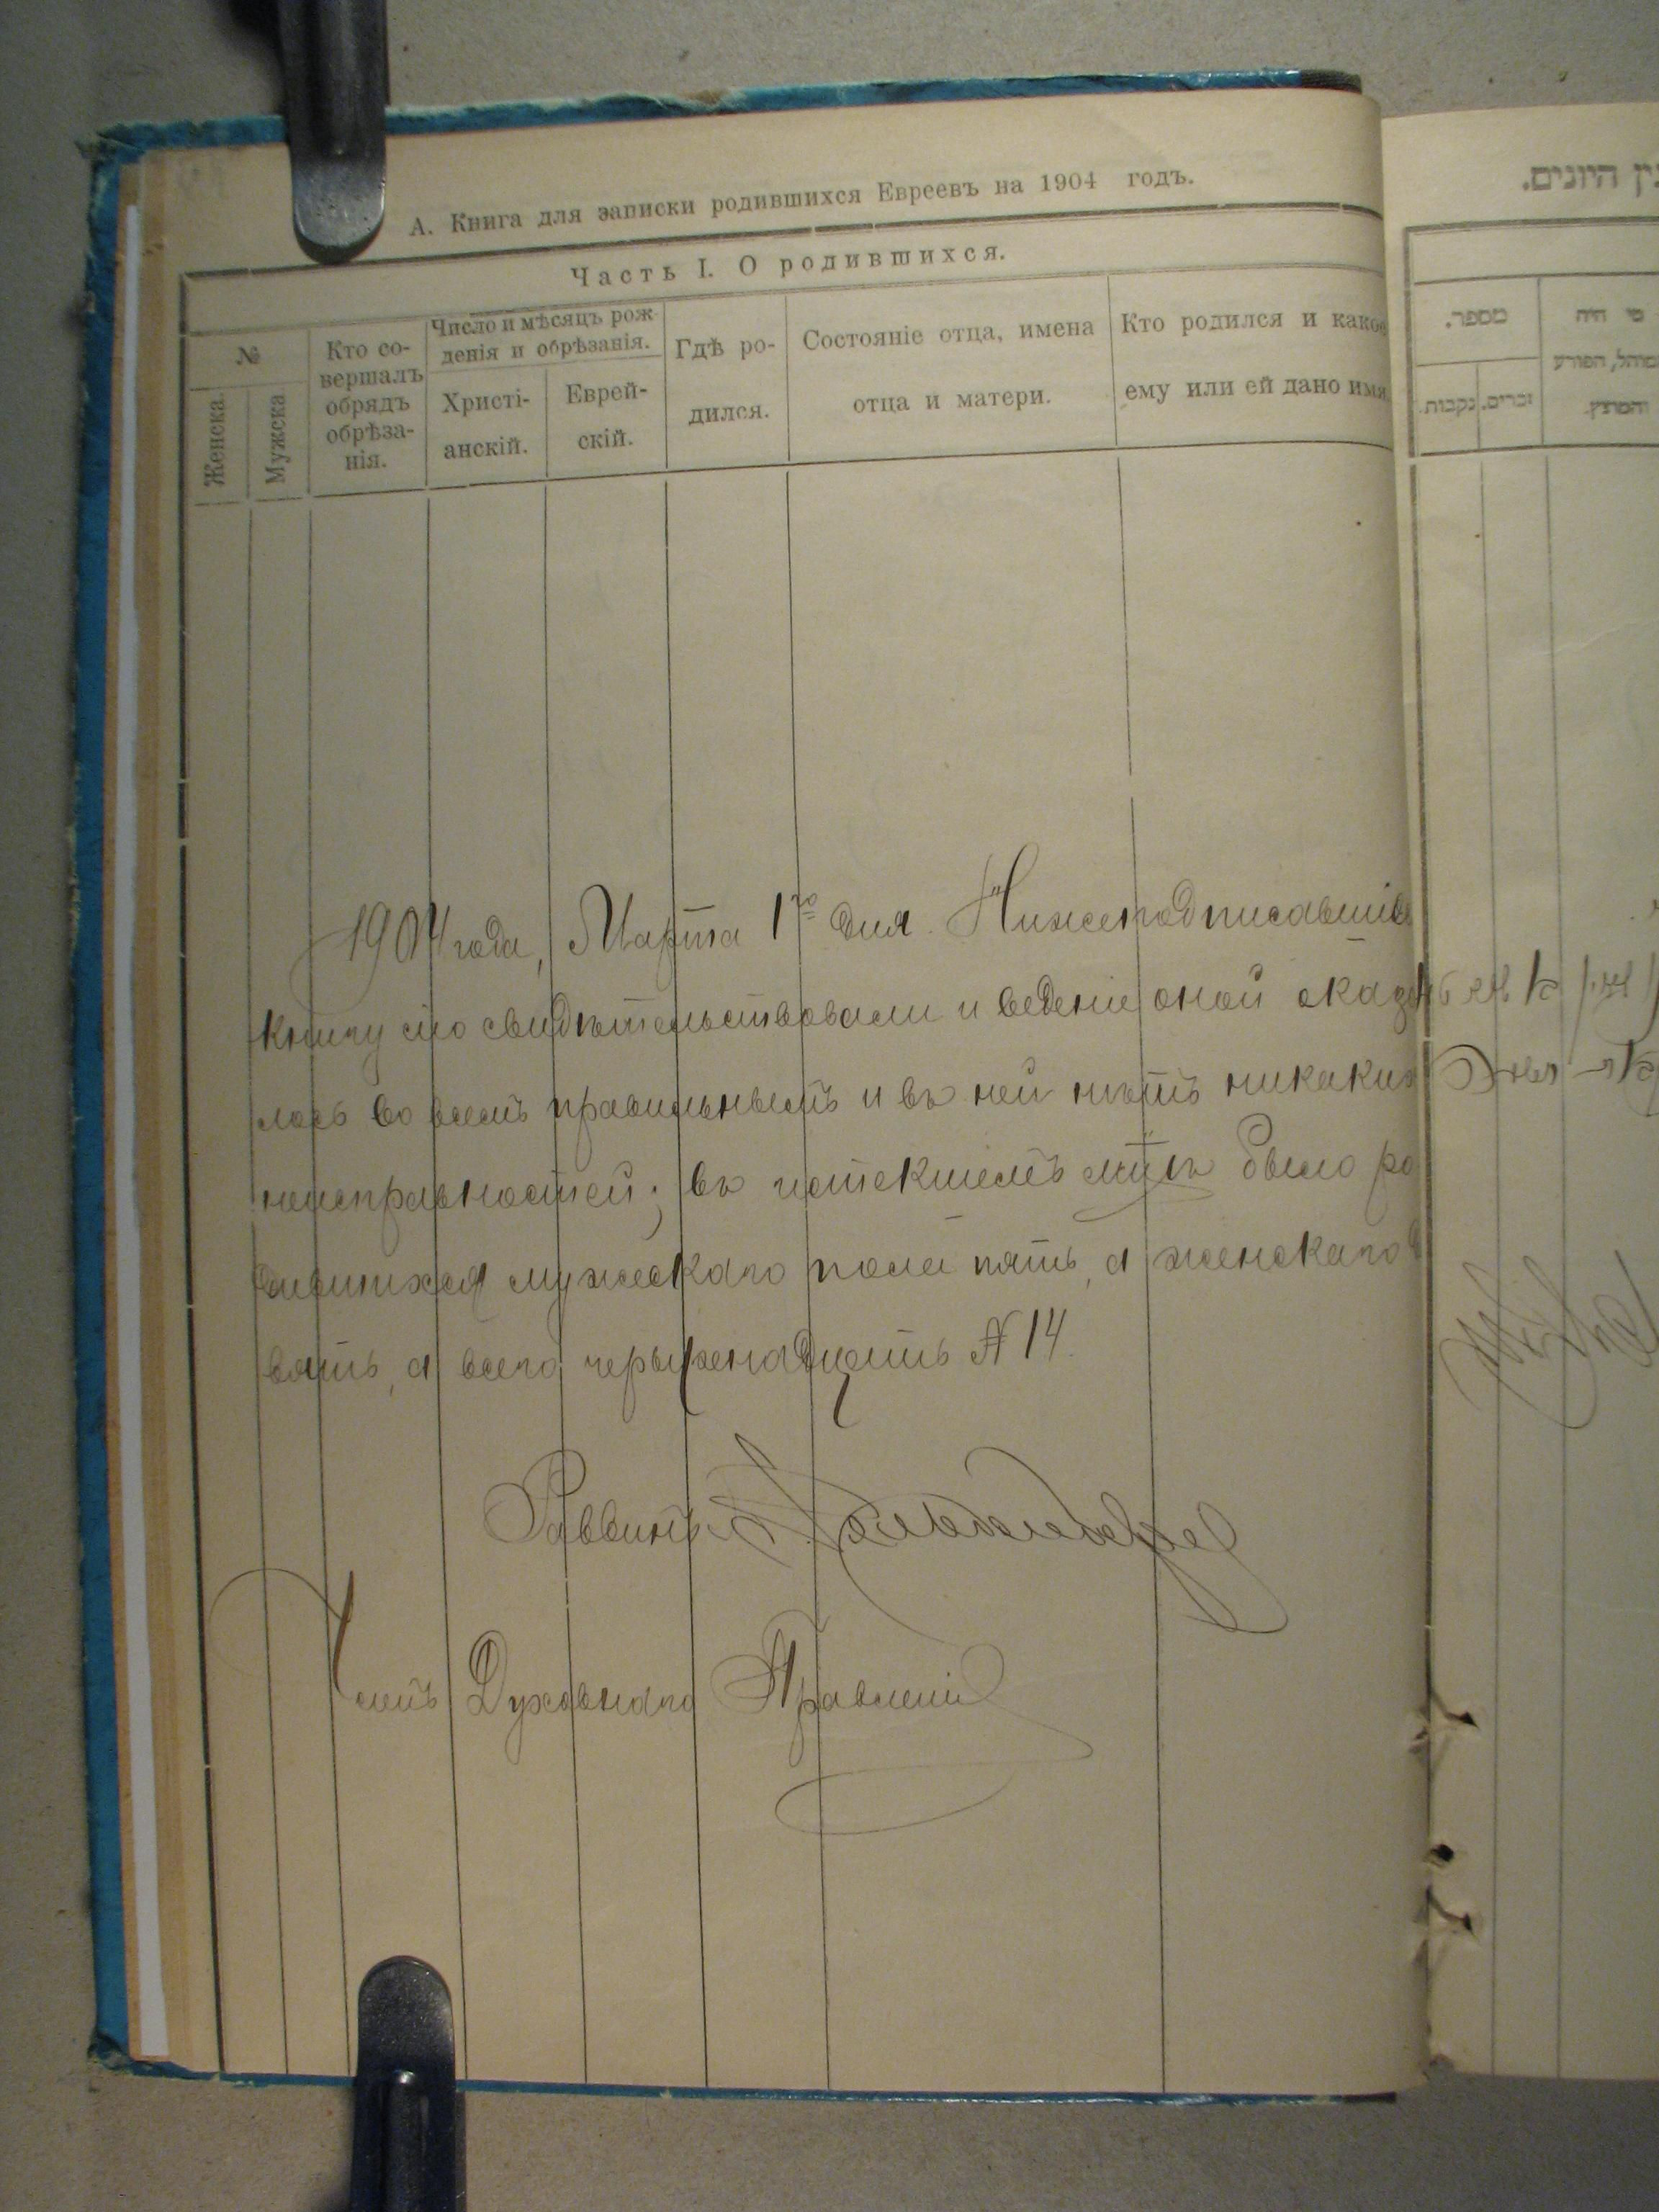 А. Книга для записки родившихся Евреевъ на 1904 годъ.
Часть I. О родившихся.
№
Женска.
Мужска
Кто со-
вершалъ
обрядъ
обрѣза-
нія.
Число и мѣсяцъ рож-
денія и обрѣзанія.
Христі-
анскій.
Еврей-
скій.
Гдѣ ро-
дился.
Состояніе отца, имена
отца и матери.
Кто родился и какое
ему или ей дано имя
1904 года, Марта 1го дня. Нижеподписавшіе
книгу сію свидѣтельствовали и веденіе оной оказа
лось во всемъ правильнымъ и въ ней нѣтъ никаких
неисправностей; въ истекшемъ м-цѣ было ро
дившихся мужескаго пола пять, а женскаго д
вять, а всего четырнадцать № 14.
Раввинъ
Членъ Духовнаго Правленія
מספר.
נקבות.
זכרים.
מי היה
המוהל, הפורע
והמוצץ.